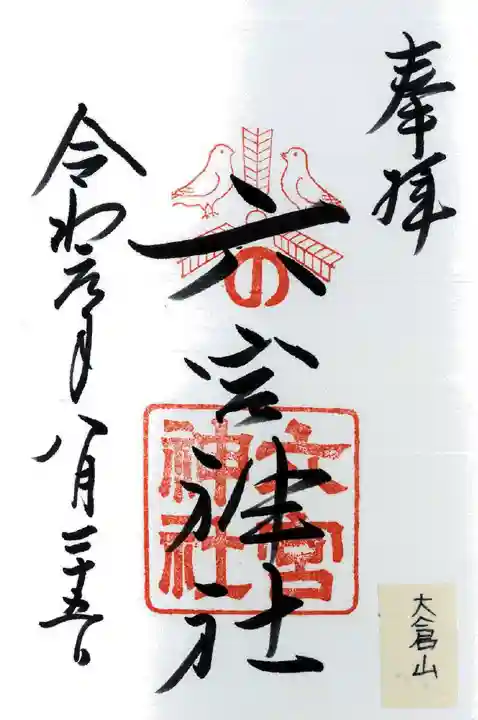 奉拝
六の宮神社
六宮
神社
令和元年八月二十五日
大倉山